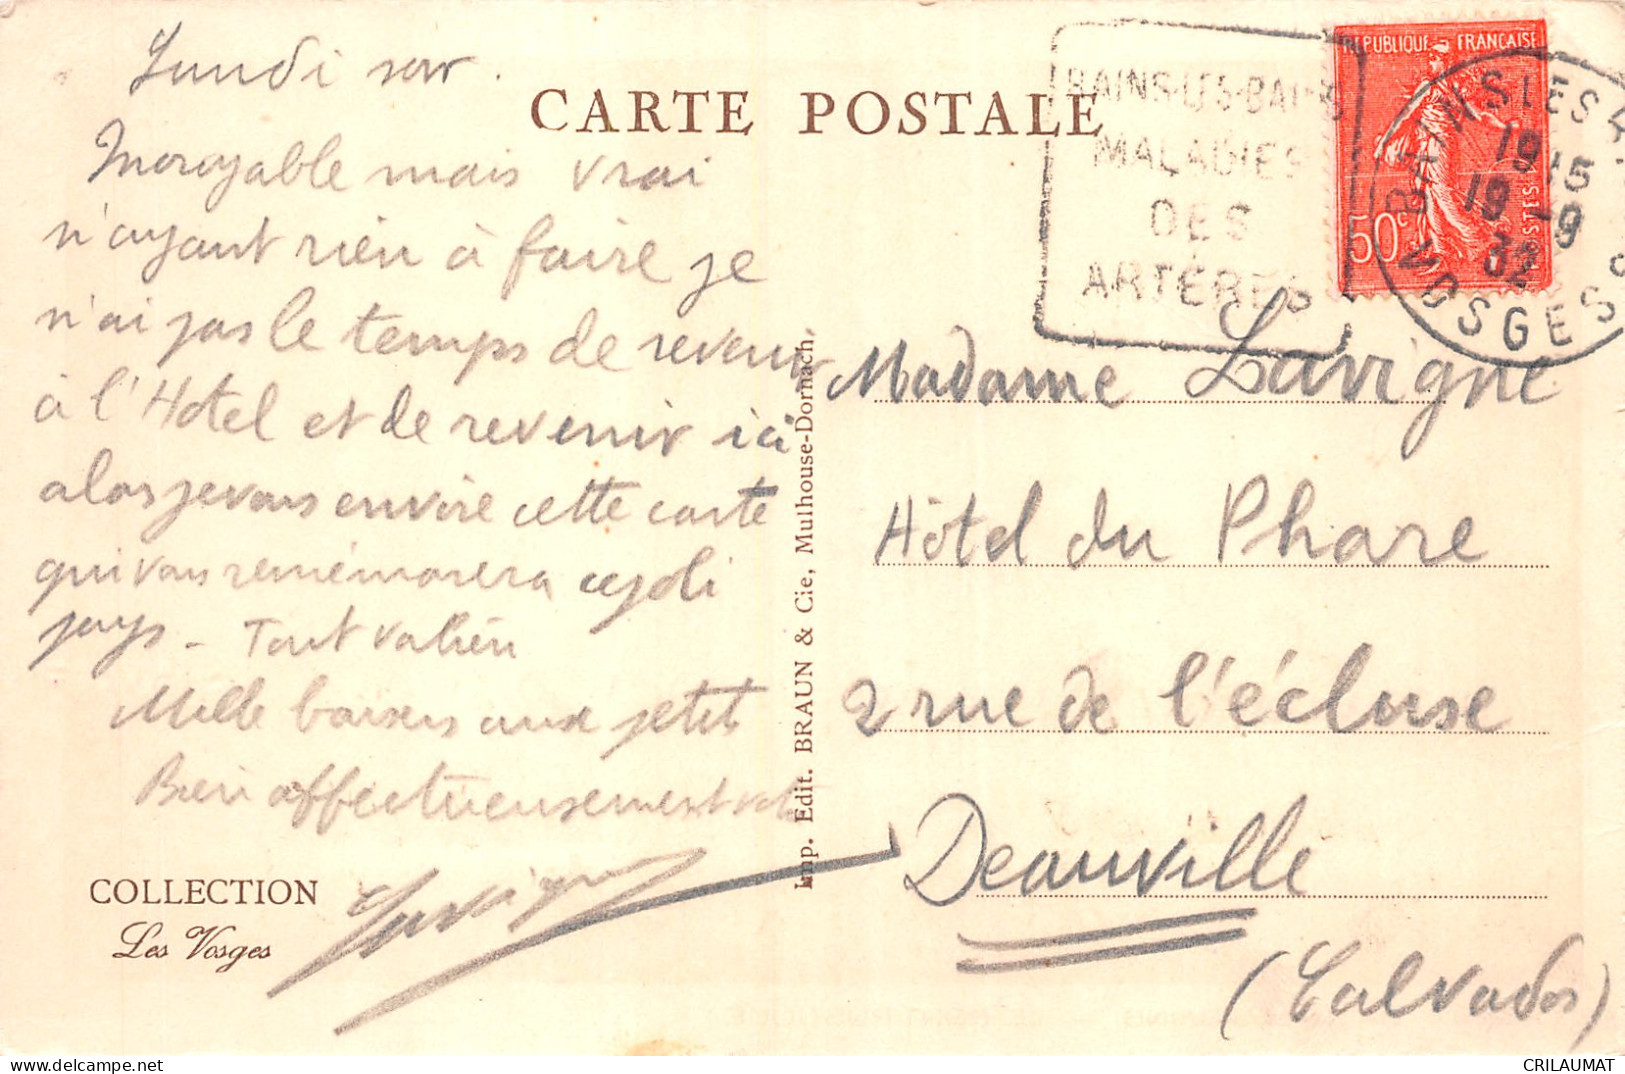 Lundi soir.
Incroyable mais vrai
n'ayant rien à faire je
n'ai pas le temps de revenir
à l'Hotel et de revenir ici
alors je vous envoie cette carte
qui vous remémorera ce joli
pays - Tout va bien
Mille baisers aux petits
Bien affectueusement
Lavigne
COLLECTION
Les Vosges
CARTE POSTALE
Imp. Edit. BRAUN & Cie, Mulhouse-Dornach.
BAINS-LES-BAINS
MALADIES
DES
ARTÈRES
REPUBLIQUE FRANÇAISE
50c
POSTES
BAINS LES BAINS
19 15
19 -9
32
VOSGES
Madame Lavigne
Hôtel du Phare
2 rue de l'écluse
Deauville
(Calvados)
CRILAUMAT